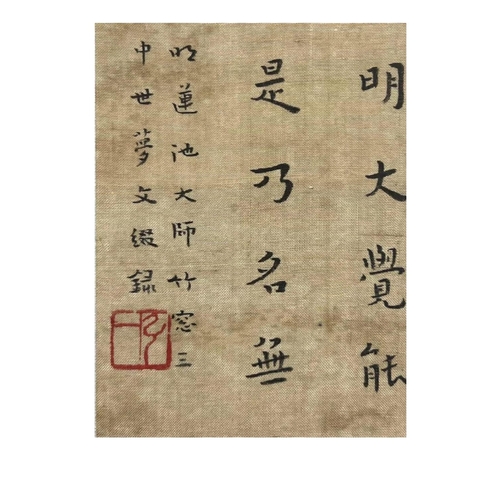 明大覺能
是乃名無
明蓮池大師竹窓三
中世夢文綴録